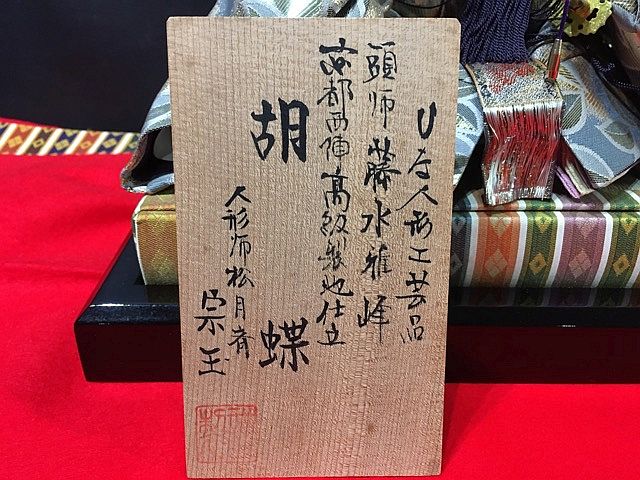 ひな人形工芸品
頭師 藤水雅峰
京都西陣高級製地仕立
胡蝶
人形師松月斎
宗玉